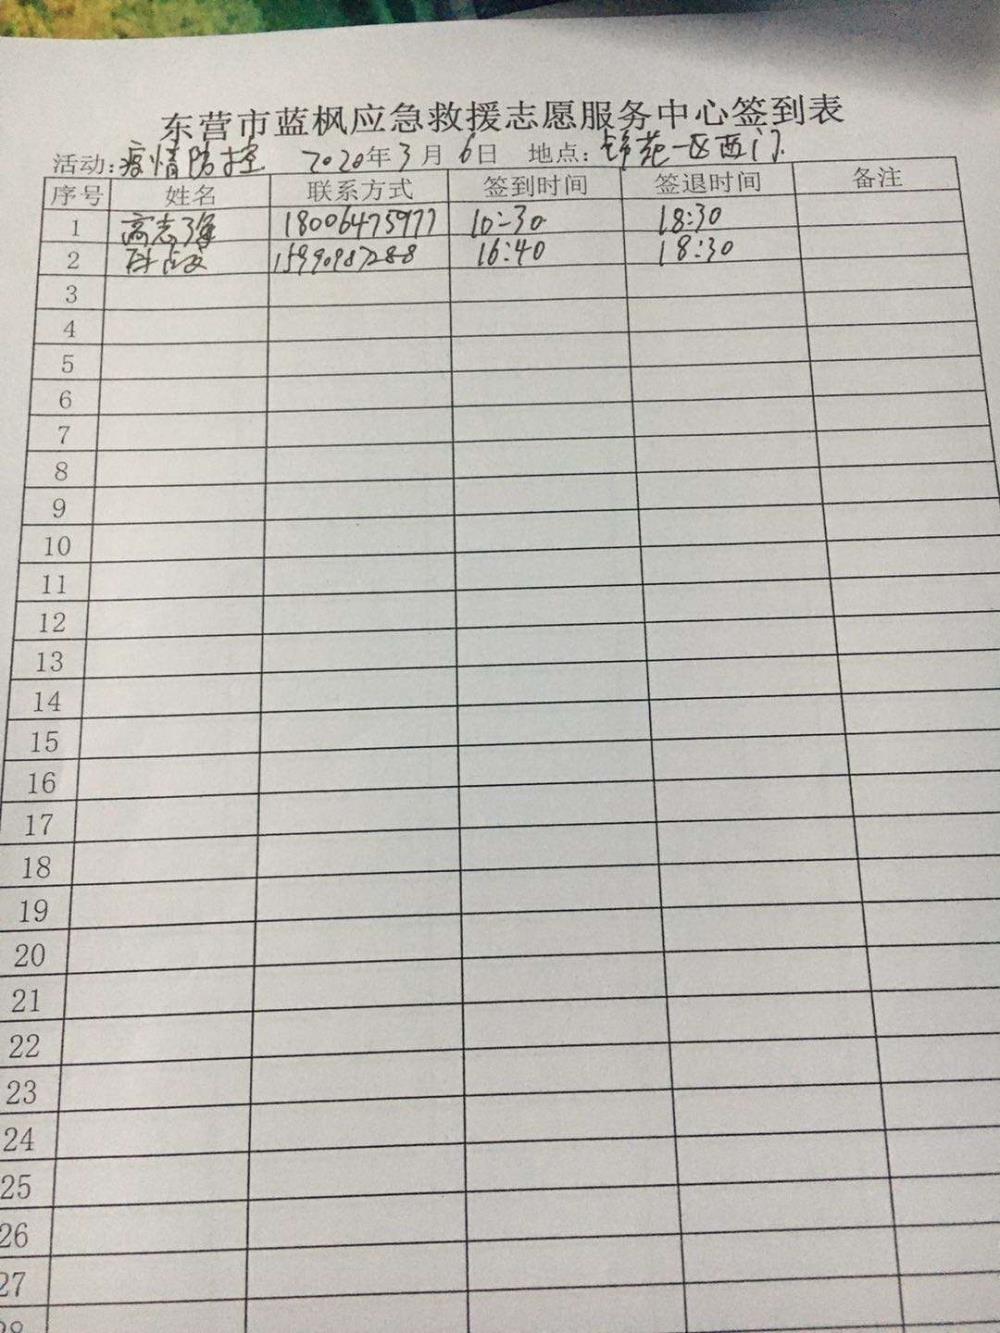 东营市蓝枫应急救援志愿服务中心签到表
活动:疫情防控 2020年3月6日 地点:锦苑一区西门
序号 姓名 联系方式 签到时间 签退时间 备注
1 高志强 18006475977 10:30 18:30
2 15990987288 16:40 18:30
3
4
5
6
7
8
9
10
11
12
13
14
15
16
17
18
19
20
21
22
23
24
25
26
27
28